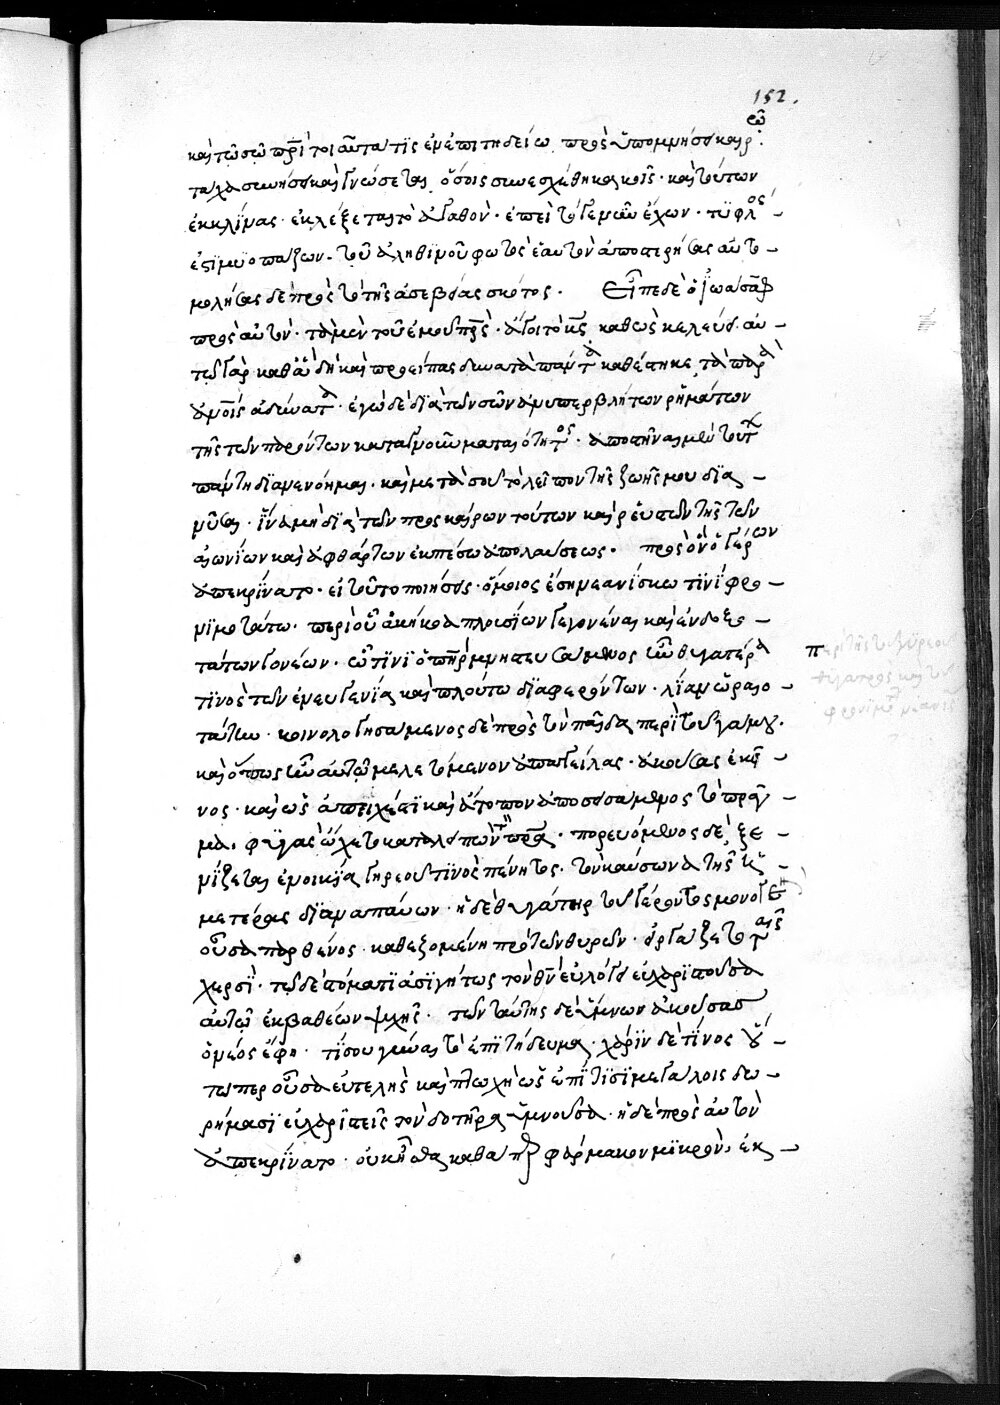 152.
καὶ τῷ σῷ πρὶ τοιαῦτα τίς ἐν ἐπιτηδείω πρὸς ὑπομνήσει καιρῷ.
ταλανήσει καὶ γνώσεται ὅσοις συνεσχέθη κακοῖς. καὶ τούτων
ἐκκλίνας. ἐκλέξεται τὸ ἀγαθὸν. ἐπεὶ τό γε νῦν ἔχων. τυφλός
ἐστι μυοπάζων. τοῦ ἀληθινοῦ φωτὸς ἑαυτὸν ἀποστερήσας αὐτο
μολήσας δὲ πρὸς τὸ τῆς ἀσεβείας σκότος. Εἶπε δὲ ὁ ἰωάσαφ
πρὸς αὐτὸν. τὰ μὲν τοῦ ἐμοῦ πρς. ἄγοιτο κς καθὼς κελεύει. αὐ
τῷ γὰρ καθὰ δὴ καὶ προείπας δυνατὰ πάντα καθέστηκε τὰ παρὰ
ἀνοις ἀδύνατα. ἐγὼ δὲ διὰ τῶν σῶν ἀνυπερβλήτων ρημάτων
τῆς τῶν παρόντων καταγνοὺς ματαιότητος. ἀποστῆναι μὲν τούτων
πάντη διανενόημαι. καὶ μετὰ σοῦ τὸ λεῖπον τῆς ζωῆς μου δια
νῦσαι. ἵνα μὴ διὰ τῶν προσκαίρων τούτων καὶ ρευστῶν τῆς τῶν
αἰωνίων καὶ ἀφθάρτων ἐκπέσω ἀπολαύσεως. πρὸς ὃν ὁ γέρων
ἀπεκρίνατο. εἰ τοῦτο ποιήσεις. ὅμοιος ἔσῃ νεανίσκω τινὶ φρο
νιμωτάτω. περὶ οὗ ἀκήκοα πλουσίων γεγονέναι καὶ ἐνδοξο
τάτων γονέων. ᾧ τινι ὁ πὴρ μνηστευσάμενος τὴν θυγατέρα
τινὸς τῶν ἐν εὐγενία καὶ πλούτω διαφερόντων. λίαν ὡραιο
τάτην. κοινολογησάμενος δὲ πρὸς τὸν παῖδα περὶ τοῦ γάμου.
καὶ ὅπως τὴν αὐτῷ μελετώμενον ἀπαγγείλας. ἀκούσας ἐκεῖ
νος. καὶ ὡς ἀπευχές τι καὶ ἄτοπον ἀποσεισάμενος τὸ πρᾶγ
μα. φυγὰς ᾤχετο καταλιπὼν τὸν πρα. πορευόμενος δὲ, ξε
νίζεται ἐν οἰκία γηρεοῦ τινὸς πένητος. τὸν καύσωνα τῆς ἡ
μέρας διαναπαύων. ἡ δὲ θυγάτηρ τοῦ γέροντος μονογενὴς
οὖσα παρθένος. καθεζομένη πρὸ τῶν θυρῶν. εἰργάζετο ταῖς
χερσὶ. τῷ δὲ στόματι ἀσιγήτως τὸν θν εὐλόγει εὐχαριστοῦσα
αὐτῷ ἐκ βαθέων ψυχῆς. τῶν ταύτης δὲ ὕμνων ἀκούσας
ὁ νέος ἔφη. τί σου γύναι τὸ ἐπιτήδευμα. χάριν δὲ τίνος οὕ
τωπερ οὖσα εὐτελὴς καὶ πτωχὴ ὡς ἐπὶ τισὶ μεγάλοις δω
ρήμασι εὐχαριστεῖς τὸν δοτῆρα ὑμνοῦσα. ἡ δὲ πρὸς αὐτὸν
ἀπεκρίνατο. οὐκ οἶσθα καθάπερ φάρμακον μικρὸν, ἐκ
περὶ τῆς τοῦ γηρεοῦ
θυγατρὸς καὶ τοῦ
φρονίμου νεανίσκου